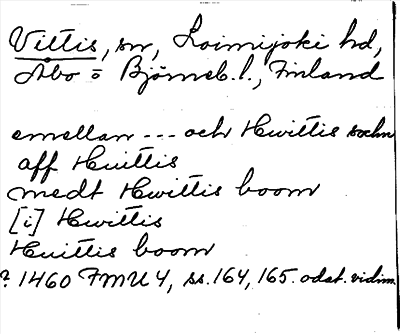 Vittis, sn, Loimijoki hd,
Åbo o Björneb. l., Finland
emellan --- och Hwittis sochn
aff Huittis
medt Hwittis boom
[i] Hwittis
Huittis boom
? 1460 FMU 4, ss. 164, 165. odat. vidim.